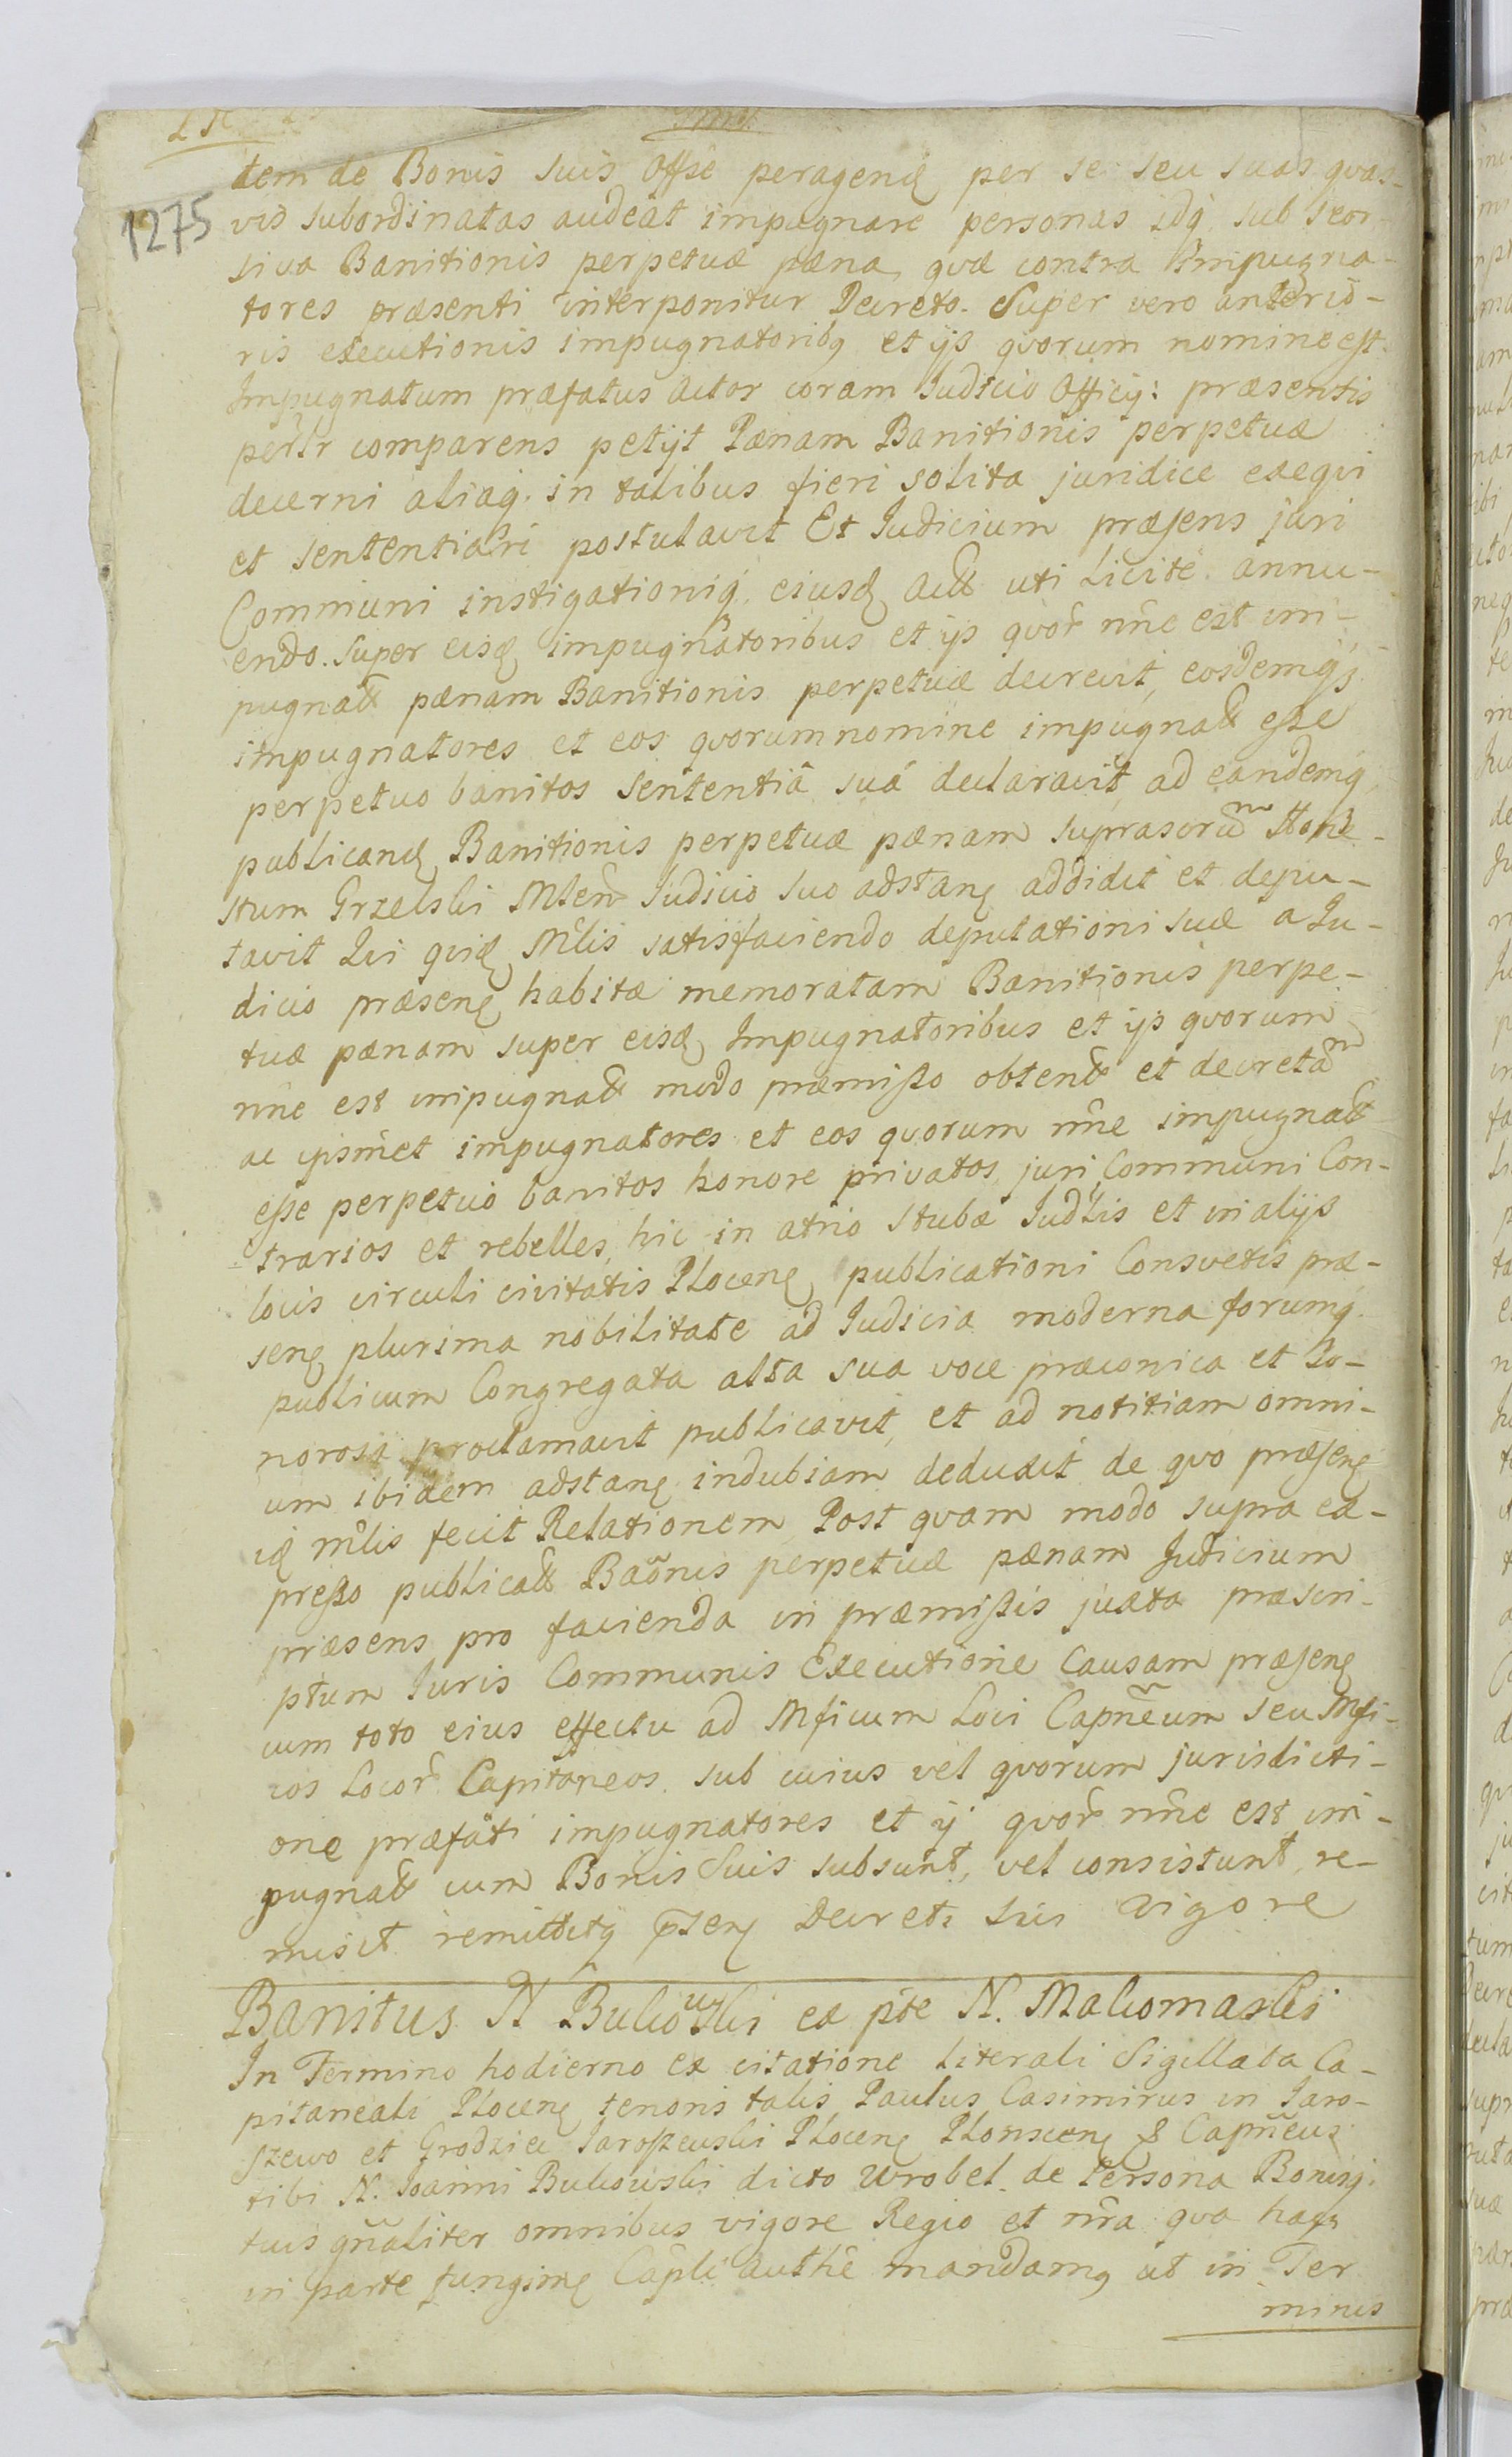 1275
tem de Bonis suis Offsê peragenđ per se seu suas qvas-
vis subordinatas audeat impugnare personas idq. sub seor
siva Banitionis perpetuæ pæna, qvæ contra Impugna-
tores præsenti interponitur Decreto. Super vero anterio-
ris executionis impugnatoribq et ijs qvorum nomine est
Impugnatum præfatus Actor coram Iudicio Officij: præsentis
perlr comparens petijt Pænam Banitionis perpetuæ
decerni aliaq. in talibus fieri solita juridice exeqvi
et sententiari postulavit Et Iudicium præsens juri
Communi instigationiq. eiusđ Actt uti Licitê annu-
endo. super eisđ impugnâtoribus et ijs qvor̃ nñe est im-
pugnatt pænam Banitionis perpetuæ decrevit, eosdemq3
impugnatores et eos qvorum nomine impugnatt esse
perpetuo banitos Sententiâ suâ declaravit, ad eandemq.
publicanđ Banitionis perpetuæ pænam suprascrũm Hone-
stum Grzelski Mlem̃ Iudicio suo adstanę addidit et depu-
tavit Qvi qvidę Mlis satisfaciendo deputationi suæ a Iu-
dicio præsenę habitæ memoratam Banitionis perpe-
tuæ pænam super eisđ Impugnatoribus et ijs qvorum
nñe est impugnatt modo præmisso obtentt et decretam
ac ipsmet impugnatores et eos qvorum nñe impugnatt
esse perpetuo banitos honore privatos, juri Communi Con-
trarios et rebelles, hic in atrio Stubæ Iudlis et in alijs
locis circuli civitatis Plocenę publicationi Consvetis præ-
senę plurima nobilitate ad Iudicia moderna forumq.
publicum Congregata alta sua voce præconica et So-
norosa proclamavit publicavit, et ad notitiam omni-
um ibidem adstanę indubiam deduxit de qvo præsenę
iđ mlis fecit Relationem, Post qvam modo supra ex-
presso publicatt Baõnis perpetuæ pænam Iudicium
præsens pro facienda in præmissis juxta præscri-
ptum Iuris Communis Executione Causam præsenę
cum toto eius effectu ad Mficum Loci Capñeum seu Mfi-
cos Locor̃ Capitaneos sub cuius vel qvorum jurisdicti-
one præfati impugnatores et ij qvor̃ nñe est im-
pugnatt cum Bonis Suis subsunt, vel consistunt, re-
misit remittitq p̃senę Decreti sui vigore
Banitus N Bukowski ex pte N. Makomaski
In Termino hodierno ex citatione literali Sigillata Ca-
pitaneali Plocenę tenoris talis Paulus Casimirus in Iaro-
szewo et Grodziec Iaroszewski Plocenę Plonscenę & Capñeus
tibi N. Ioanni Bukowski dicto Wrobel de Persona Bonisq.
tuis gñaliter omnibus vigore Regio et nr̃a qva hac
in parte fungimę Capli Authê mandamq ut in Ter
minis